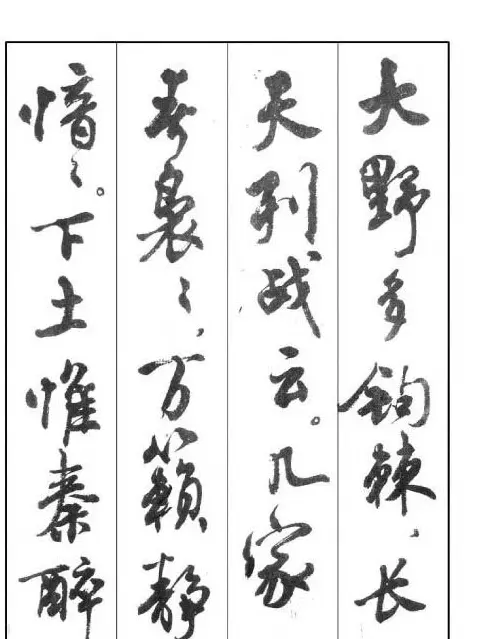 大野多鈎棘，长
天列战云。几家
春裊〻，万籟静
愔〻。下土惟秦醉